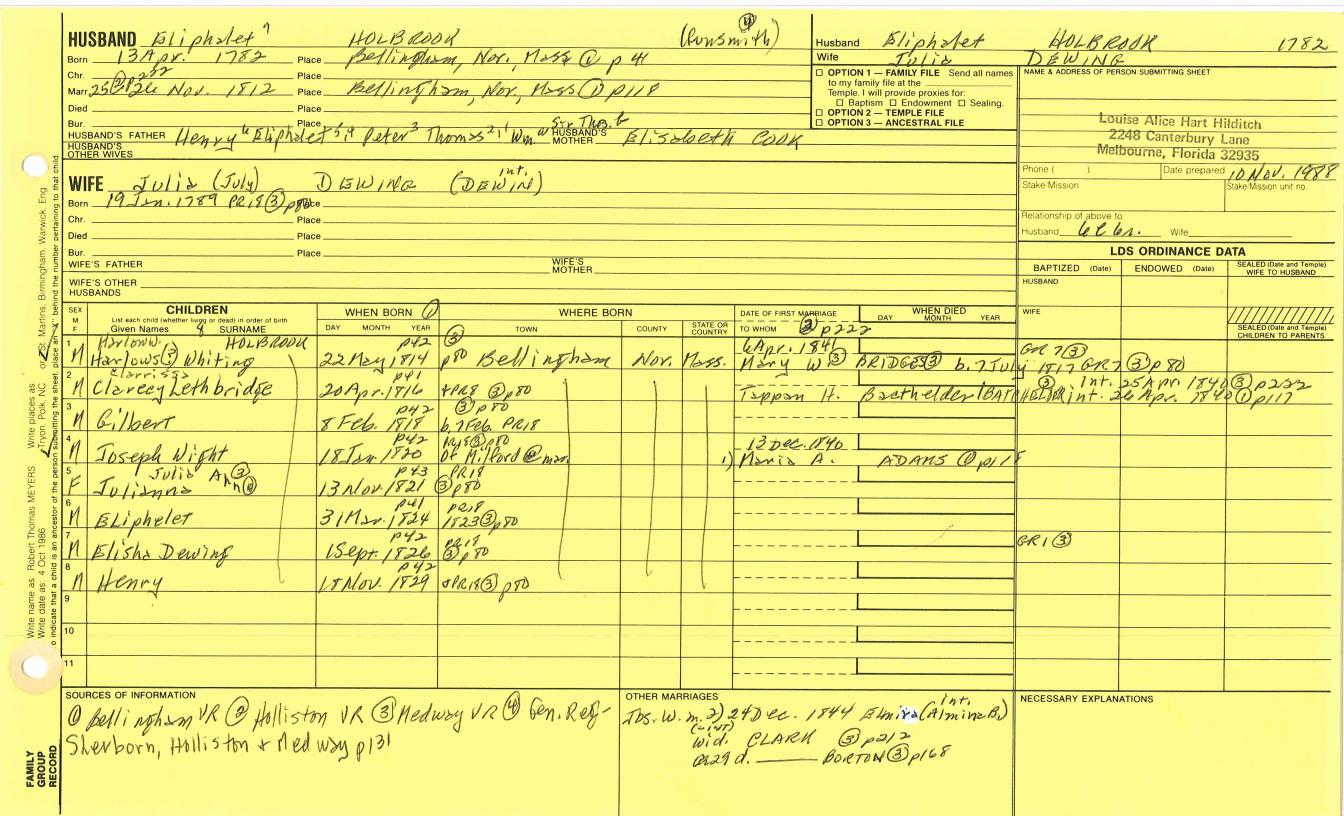 HUSBAND Eliphalet 7 HOLBROOK (Gunsmith) ④
Born 13 Apr. 1782 Place Bellingham, Nor, Mass ① p 41
Chr. Place
Marr. 25 ② p 222 26 Nov. 1812 Place Bellingham, Nor, Mass ① p118
Died Place
Bur. Place
HUSBAND'S FATHER Henry 6 Eliphalet 5,4 Peter 3 Thomas 2,1 Wm Sir Thos. HUSBAND'S MOTHER Elisabeth COOK
HUSBAND'S OTHER WIVES
WIFE Julia (July) DEWING (DEWIN) int.
Born 19 Jan. 1789 PR18 ③ p80 Place
Chr. Place
Died Place
Bur. Place
WIFE'S FATHER WIFE'S MOTHER
WIFE'S OTHER HUSBANDS
Husband Eliphalet HOLBROOK 1782
Wife Julia DEWING
☐ OPTION 1 — FAMILY FILE Send all names
to my family file at the
Temple. I will provide proxies for:
☐ Baptism ☐ Endowment ☐ Sealing.
☐ OPTION 2 — TEMPLE FILE
☐ OPTION 3 — ANCESTRAL FILE
NAME & ADDRESS OF PERSON SUBMITTING SHEET
Louise Alice Hart Hilditch
2248 Canterbury Lane
Melbourne, Florida 32935
Phone ( ) Date prepared 10 Nov. 1988
Stake Mission Stake Mission unit no.
Relationship of above to
Husband Wife
LDS ORDINANCE DATA
BAPTIZED (Date) ENDOWED (Date) SEALED (Date and Temple) WIFE TO HUSBAND
HUSBAND
WIFE
SEALED (Date and Temple) CHILDREN TO PARENTS
SEX M F CHILDREN WHEN BORN ① WHERE BORN DATE OF FIRST MARRIAGE WHEN DIED
List each child (whether living or dead) in order of birth
Given Names 8 SURNAME DAY MONTH YEAR TOWN COUNTY STATE OR COUNTRY TO WHOM ② p222 DAY MONTH YEAR
1 Harlow W. HOLBROOK p42 ③ 6 Apr. 1841 GR7 ③
M Harlows ③ Whiting 22 May 1814 p80 Bellingham Nor. Mass. Mary W ③ BRIDGES ③ b. 7 July 1817 GR7 ③ p80
2 Clarrissa p41 ③ int. 25 Apr. 1840 ③ p222
M Clarecy Lethbridge 20 Apr. 1816 +PR18 ③ p80 Tappan H. Bacthelder (BATCHELDER int. 26 Apr. 1840 ① p117
3 p42 ③ p80
M Gilbert 8 Feb. 1818 b. 7 Feb. PR18
4 p42 PR18 ③ p80 13 Dec. 1840
M Joseph Wight 18 Jan. 1820 Of Milford @ mar. 1) Maria A. ADAMS ① p118
5 Julia Ann ③ p43 PR18
F Julianna 13 Nov. 1821 ③ p80
6 p41 PR18
M ELiphelet 31 Mar. 1824 1823 ③ p80
7 p42 PR18
M Elisha Dewing 1 Sept. 1826 ③ p80 GR1 ③
8 p42
M Henry 18 Nov. 1829 +PR18 ③ p80
9
10
11
SOURCES OF INFORMATION
① Bellingham VR ② Holliston VR ③ Medway VR ④ Gen. Reg-
Sherborn, Holliston + Medway p131
OTHER MARRIAGES
Jos. W. m. 2) 24 Dec. 1844 Elmira (Almina B.) int.
wid. CLARK ③ p212
ae 29 d. ——— BORTON ③ p168
NECESSARY EXPLANATIONS
FAMILY GROUP RECORD
Write name as: Robert Thomas MEYERS Write places as: Tryon, Polk, NC or St. Martins, Birmingham, Warwick, Eng
Write date as: 4 Oct 1986